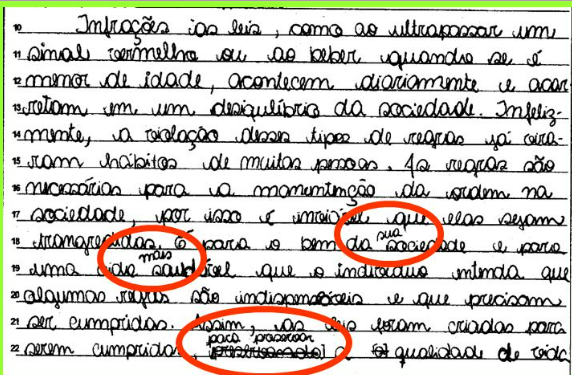 10 Infrações às leis, como ao ultrapassar um
11 sinal vermelho ou ao beber quando se é
12 menor de idade, acontecem diariamente e acar-
13 retam em um desiquilíbrio da sociedade. Infeliz-
14 mente, a violação desses tipos de regras já vira-
15 ram hábitos de muitas pessoas. As regras são
16 necessárias para a manentenção da ordem na
17 sociedade, por isso é inviável que elas sejam
sua
18 trangredidas. É para o bem da sociedade e para
mais
19 uma vida saudável que o indivíduo intenda que
20 algumas regras são indispensáveis e que precisam
21 ser cumpridas. Assim, as leis foram criadas para
para preservar
22 serem cumpridas, a qualidade de vida